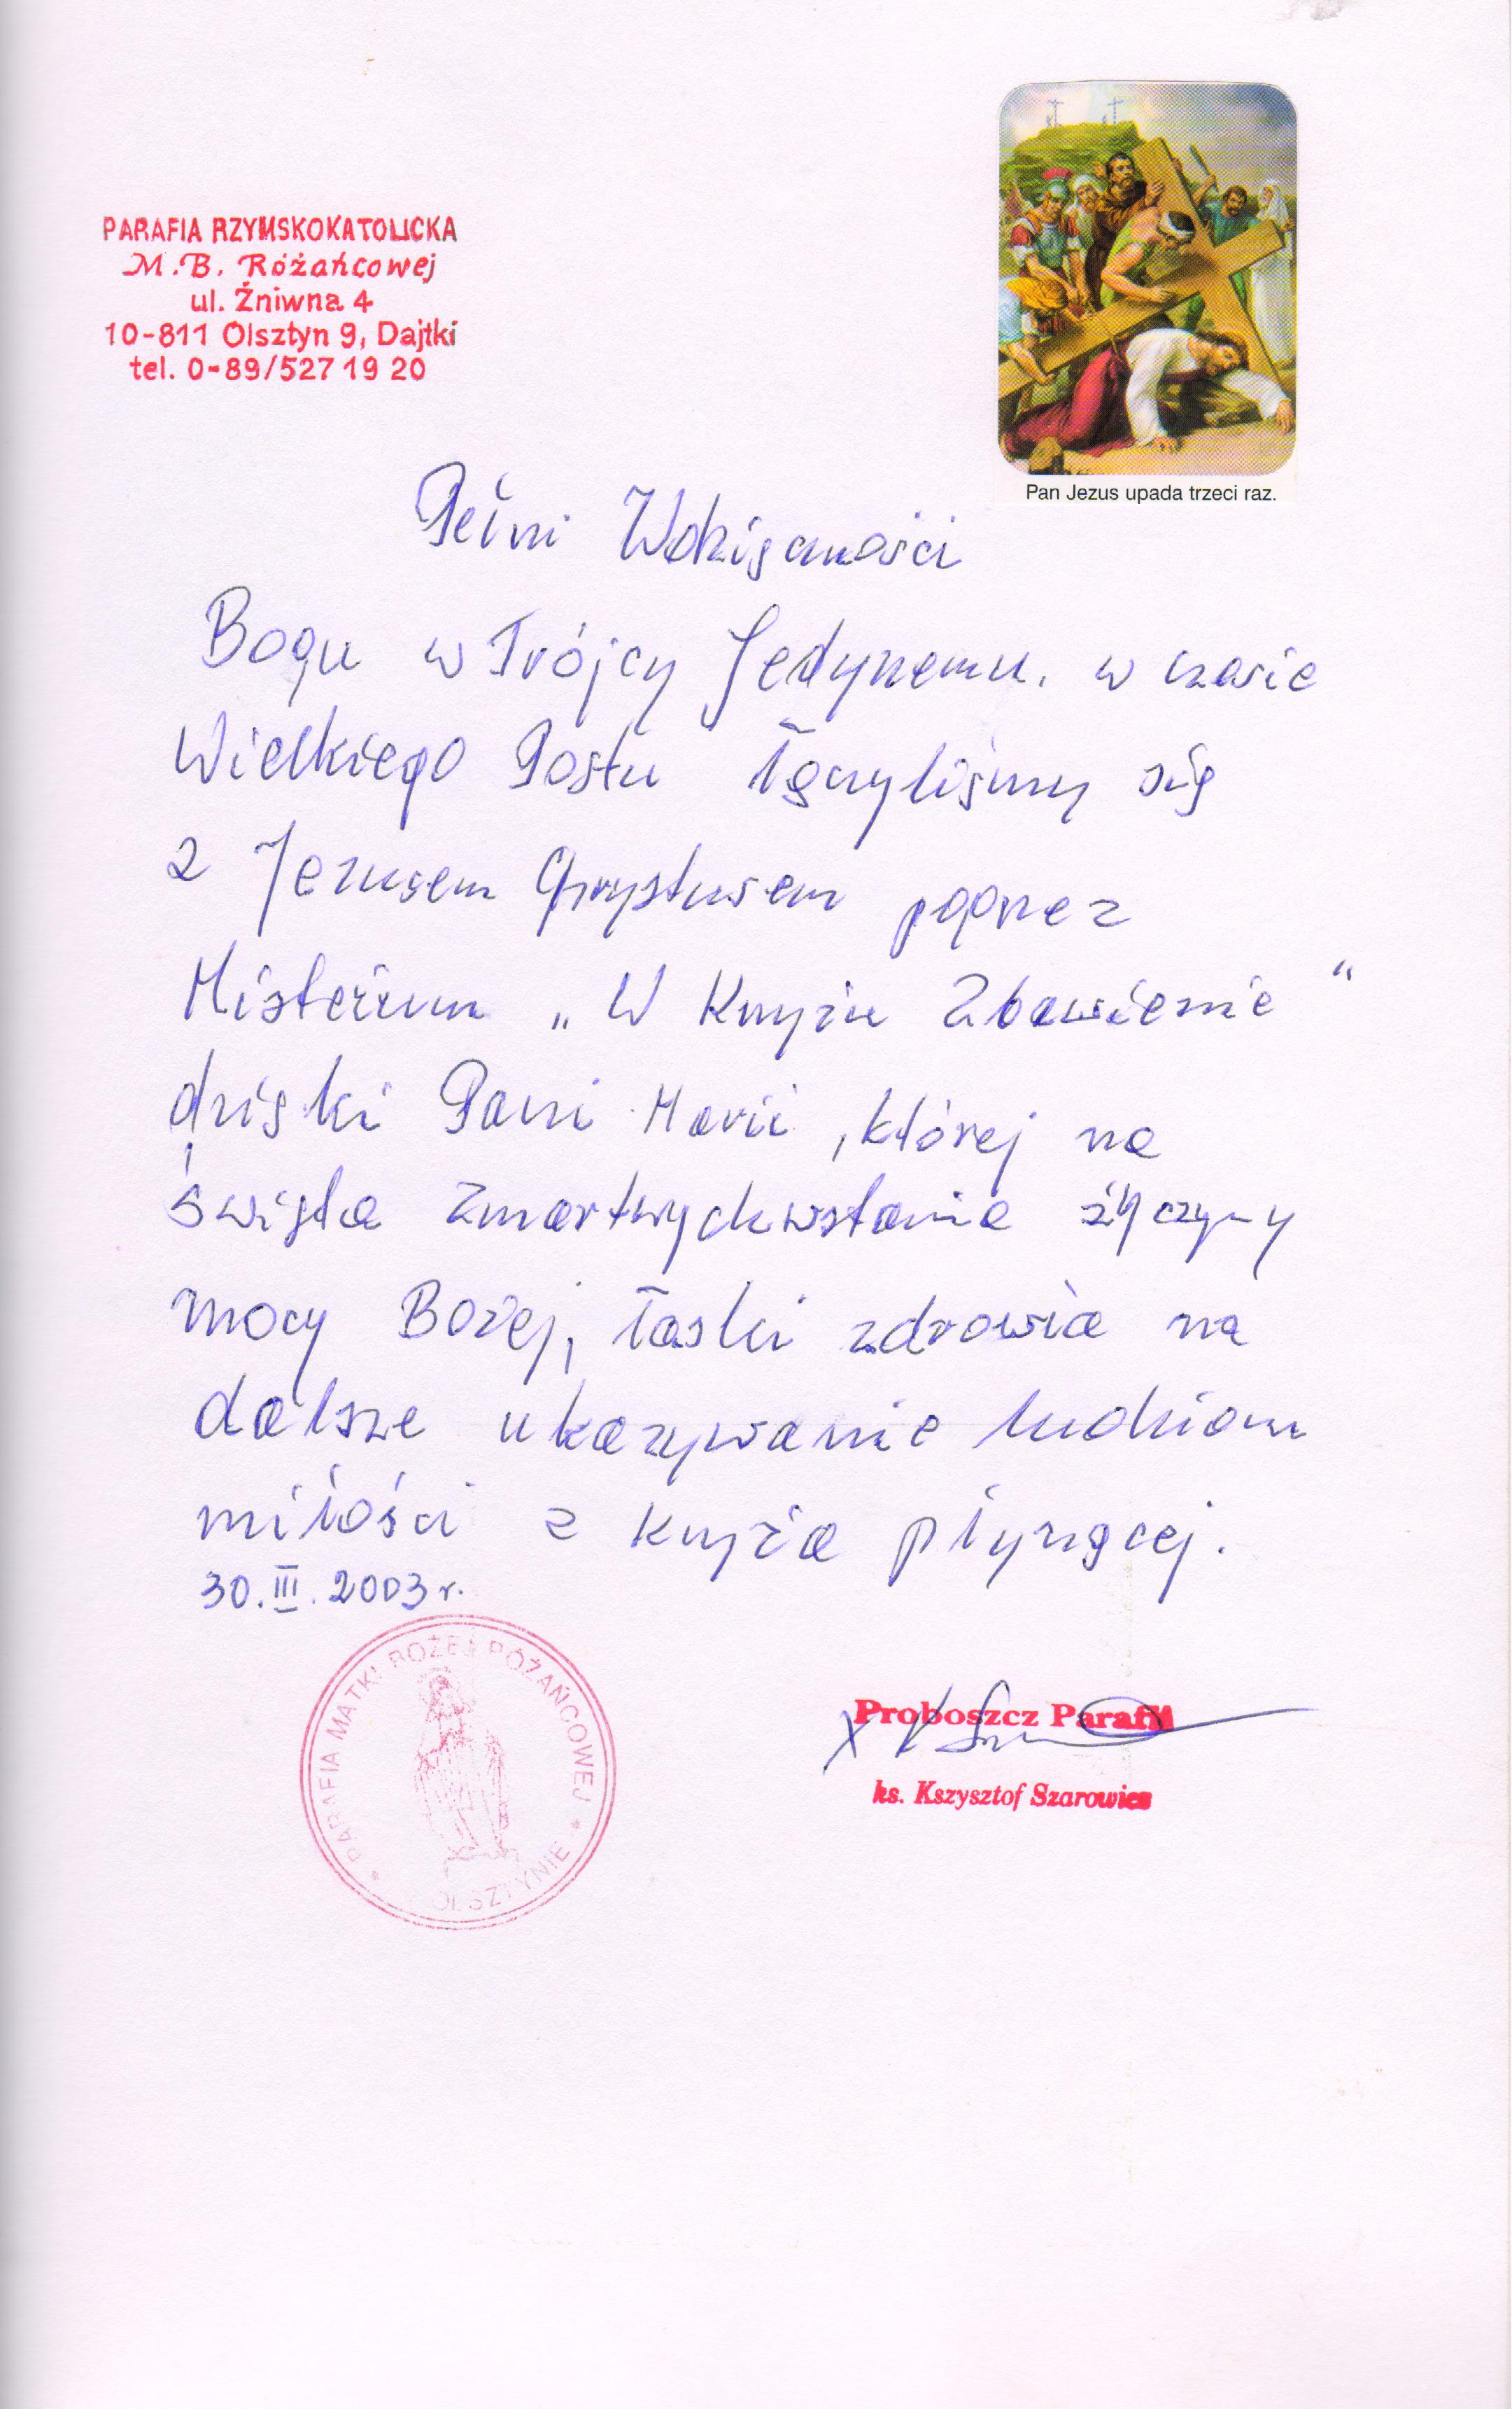 PARAFIA RZYMSKOKATOLICKA
M.B. Różańcowej
ul. Żniwna 4
10-811 Olsztyn 9, Dajtki
tel. 0-89/527 19 20
Pan Jezus upada trzeci raz.
Pełni Wdzięczności
Bogu w Trójcy Jedynemu. w czasie
Wielkiego Postu łączyliśmy się
z Jezusem Chrystusem poprzez
Misterium „W Krzyżu Zbawienie"
dzięki Pani Marii, której na
święta Zmartwychwstania życzymy
mocy Bożej, łaski zdrowia na
dalsze ukazywanie ludziom
miłości z krzyża płynącej.
30.III.2003 r.
* PARAFIA MATKI BOŻEJ RÓŻAŃCOWEJ *
OLSZTYNIE
Proboszcz Parafii
ks. Kszysztof Szarowicz